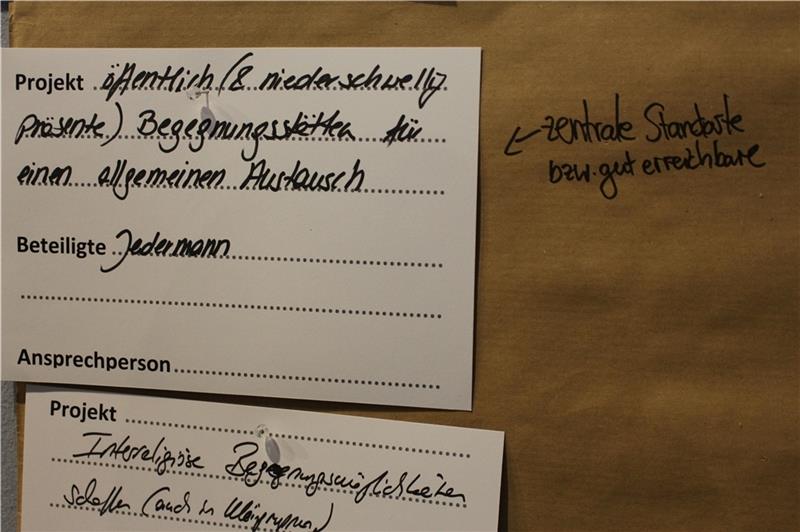 Projekt öffentlich (& niederschwellig
präsente) Begegnungsstätten für
einen allgemeinen Austausch
Beteiligte Jedermann
Ansprechperson
← zentrale Standorte
bzw. gut erreichbare
Projekt
Interreligiöse Begegnungsmöglichkeiten
schaffen (auch in Kleingruppen)